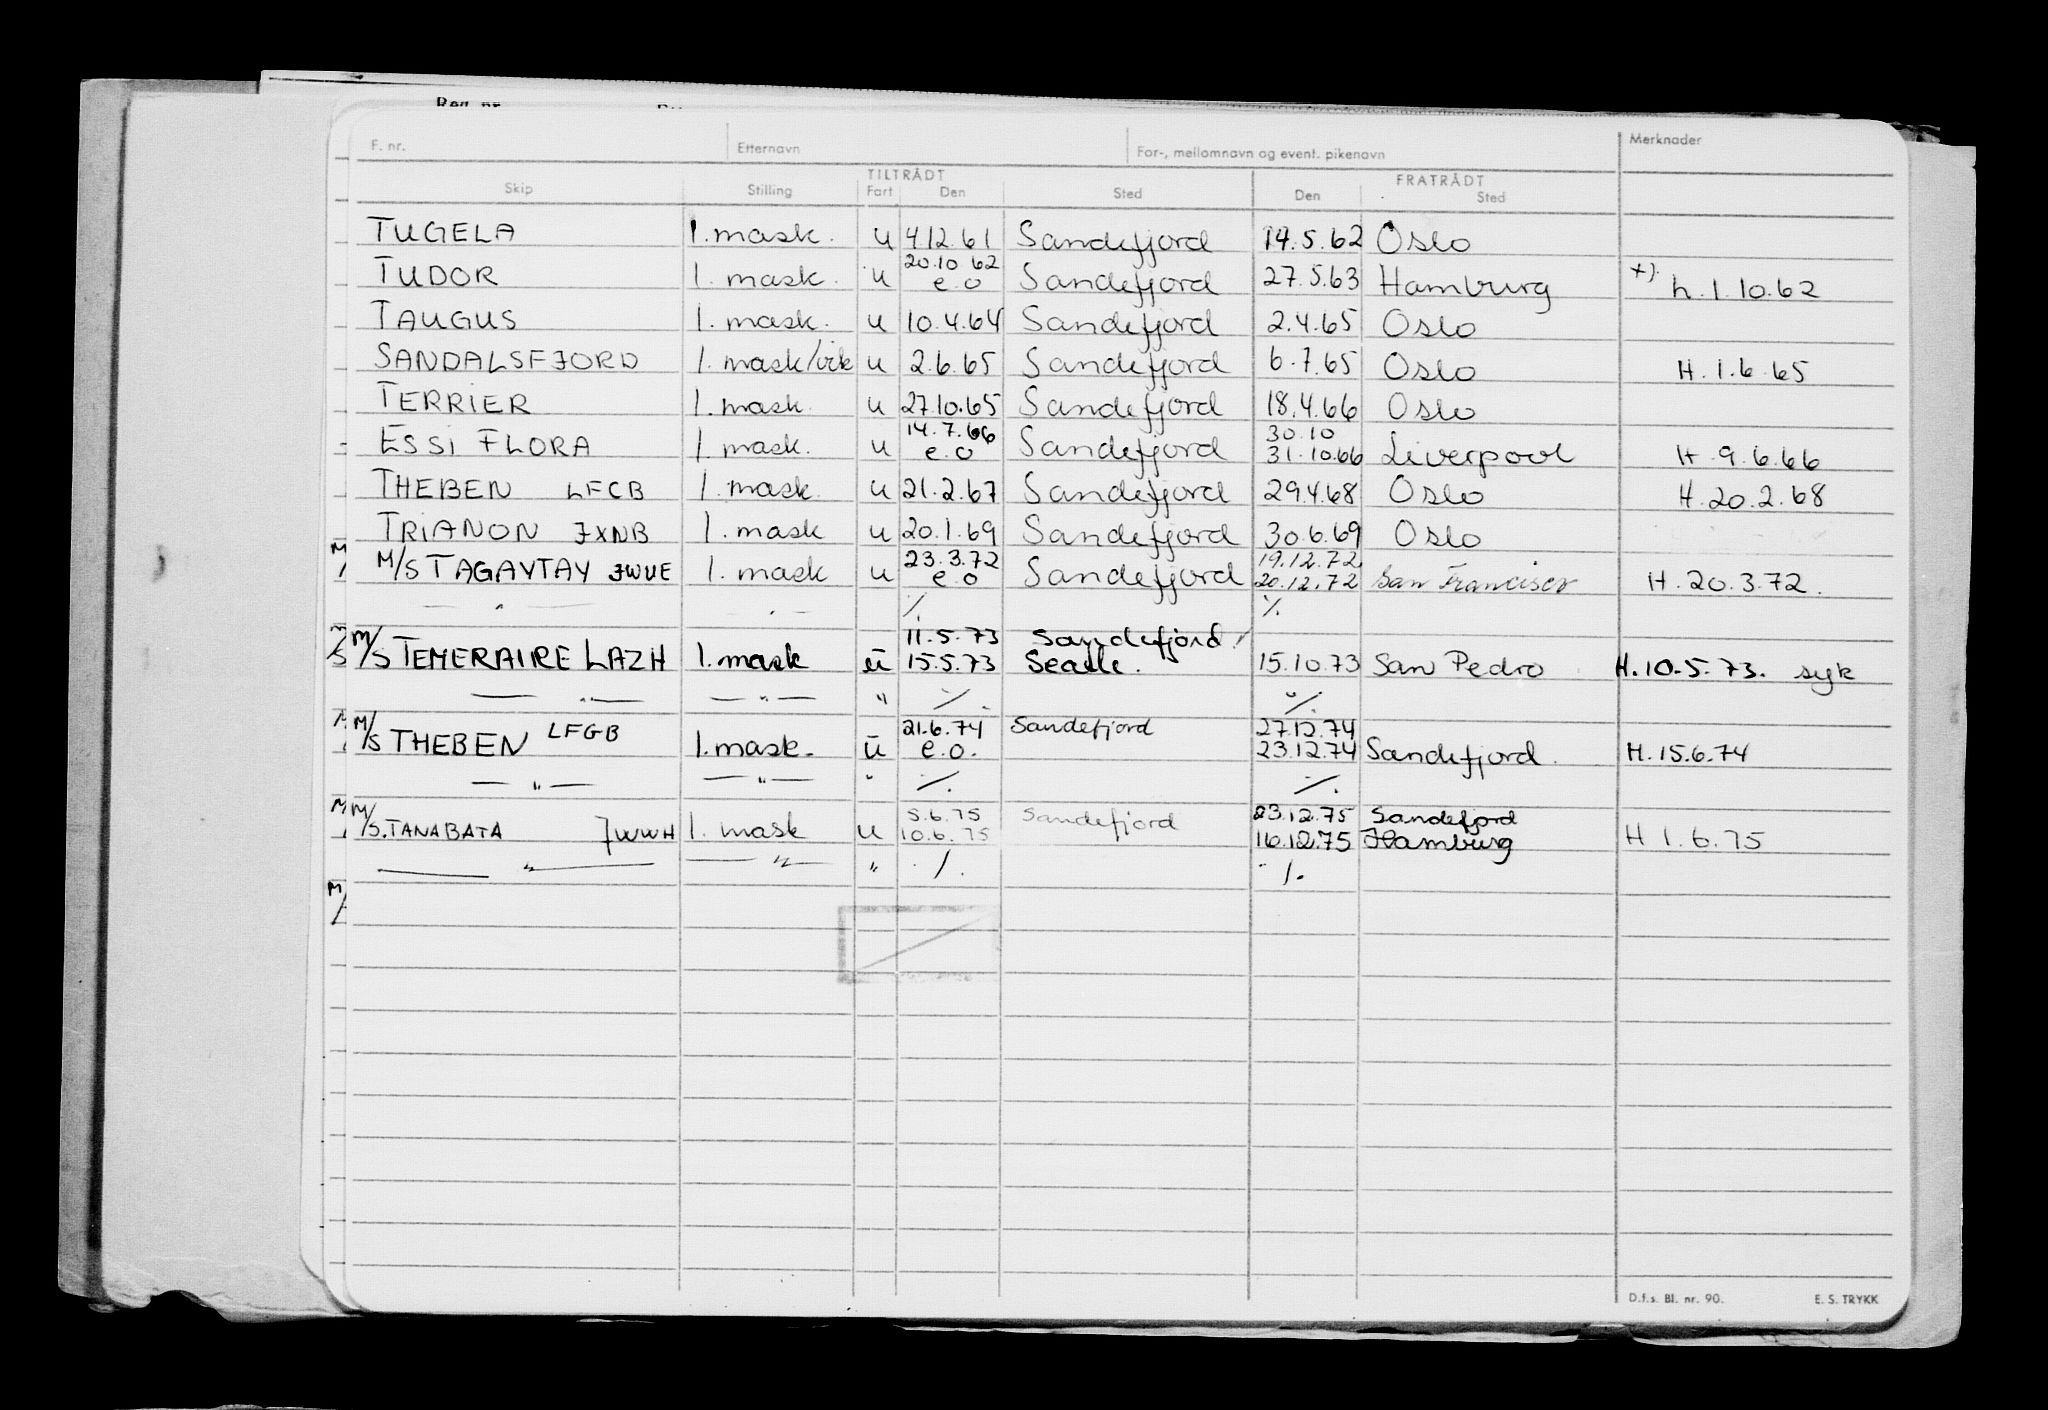 F. nr. Etternavn For-, mellomnavn og event. pikenavn Merknader
TILTRÅDT FRATRÅDT
Skip Stilling Fart Den Sted Den Sted
TUGELA 1. mask. u 4.12.61 Sandefjord 14.5.62 Oslo
20.10 62
TUDOR 1. mask. u e.o Sandefjord 27.5.63 Hamburg +) h.1.10.62
TAUGUS 1. mask. u 10.4.64 Sandefjord 2.4.65 Oslo
SANDALSFJORD 1. mask/vik u 2.6.65 Sandefjord 6.7.65 Oslo H.1.6.65
TERRIER 1. mask. u 27.10.65 Sandefjord 18.4.66 Oslo
14.7.66 30.10
ESSI FLORA 1. mask. u e.o Sandefjord 31.10.66 Liverpool H.9.6.66
THEBEN LFCB 1. mask. u 21.2.67 Sandefjord 29.4.68 Oslo H.20.2.68
TRIANON JXNB 1. mask u 20.1.69 Sandefjord 30.6.69 Oslo
23.3.72 19.12.72
M/S TAGAYTAY JWUE 1. mask u e.o Sandefjord 20.12.72 San Francisco H.20.3.72.
— " — — " — ·/. ·/.
11.5.73 Sandefjord/
M/S TEMERAIRE LAZH 1. mask u 15.5.73 Seattle. 15.10.73 San Pedro H.10.5.73. syk
— " — — " — " ·/. ·/.
LFGB 21.6.74 Sandefjord 27.12.74
M/S THEBEN 1. mask. u e.o. 23.12.74 Sandefjord. H.15.6.74
— " — — " — " ·/. ·/.
5.6.75 Sandefjord 23.12.75 Sandefjord
M/S. TANABATA JWWH 1. mask u 10.6.75 16.12.75 Hamburg H 1.6.75
— " — — " — " ·/. ·/.
D.f.s. Bl. nr. 90. E. S. TRYKK